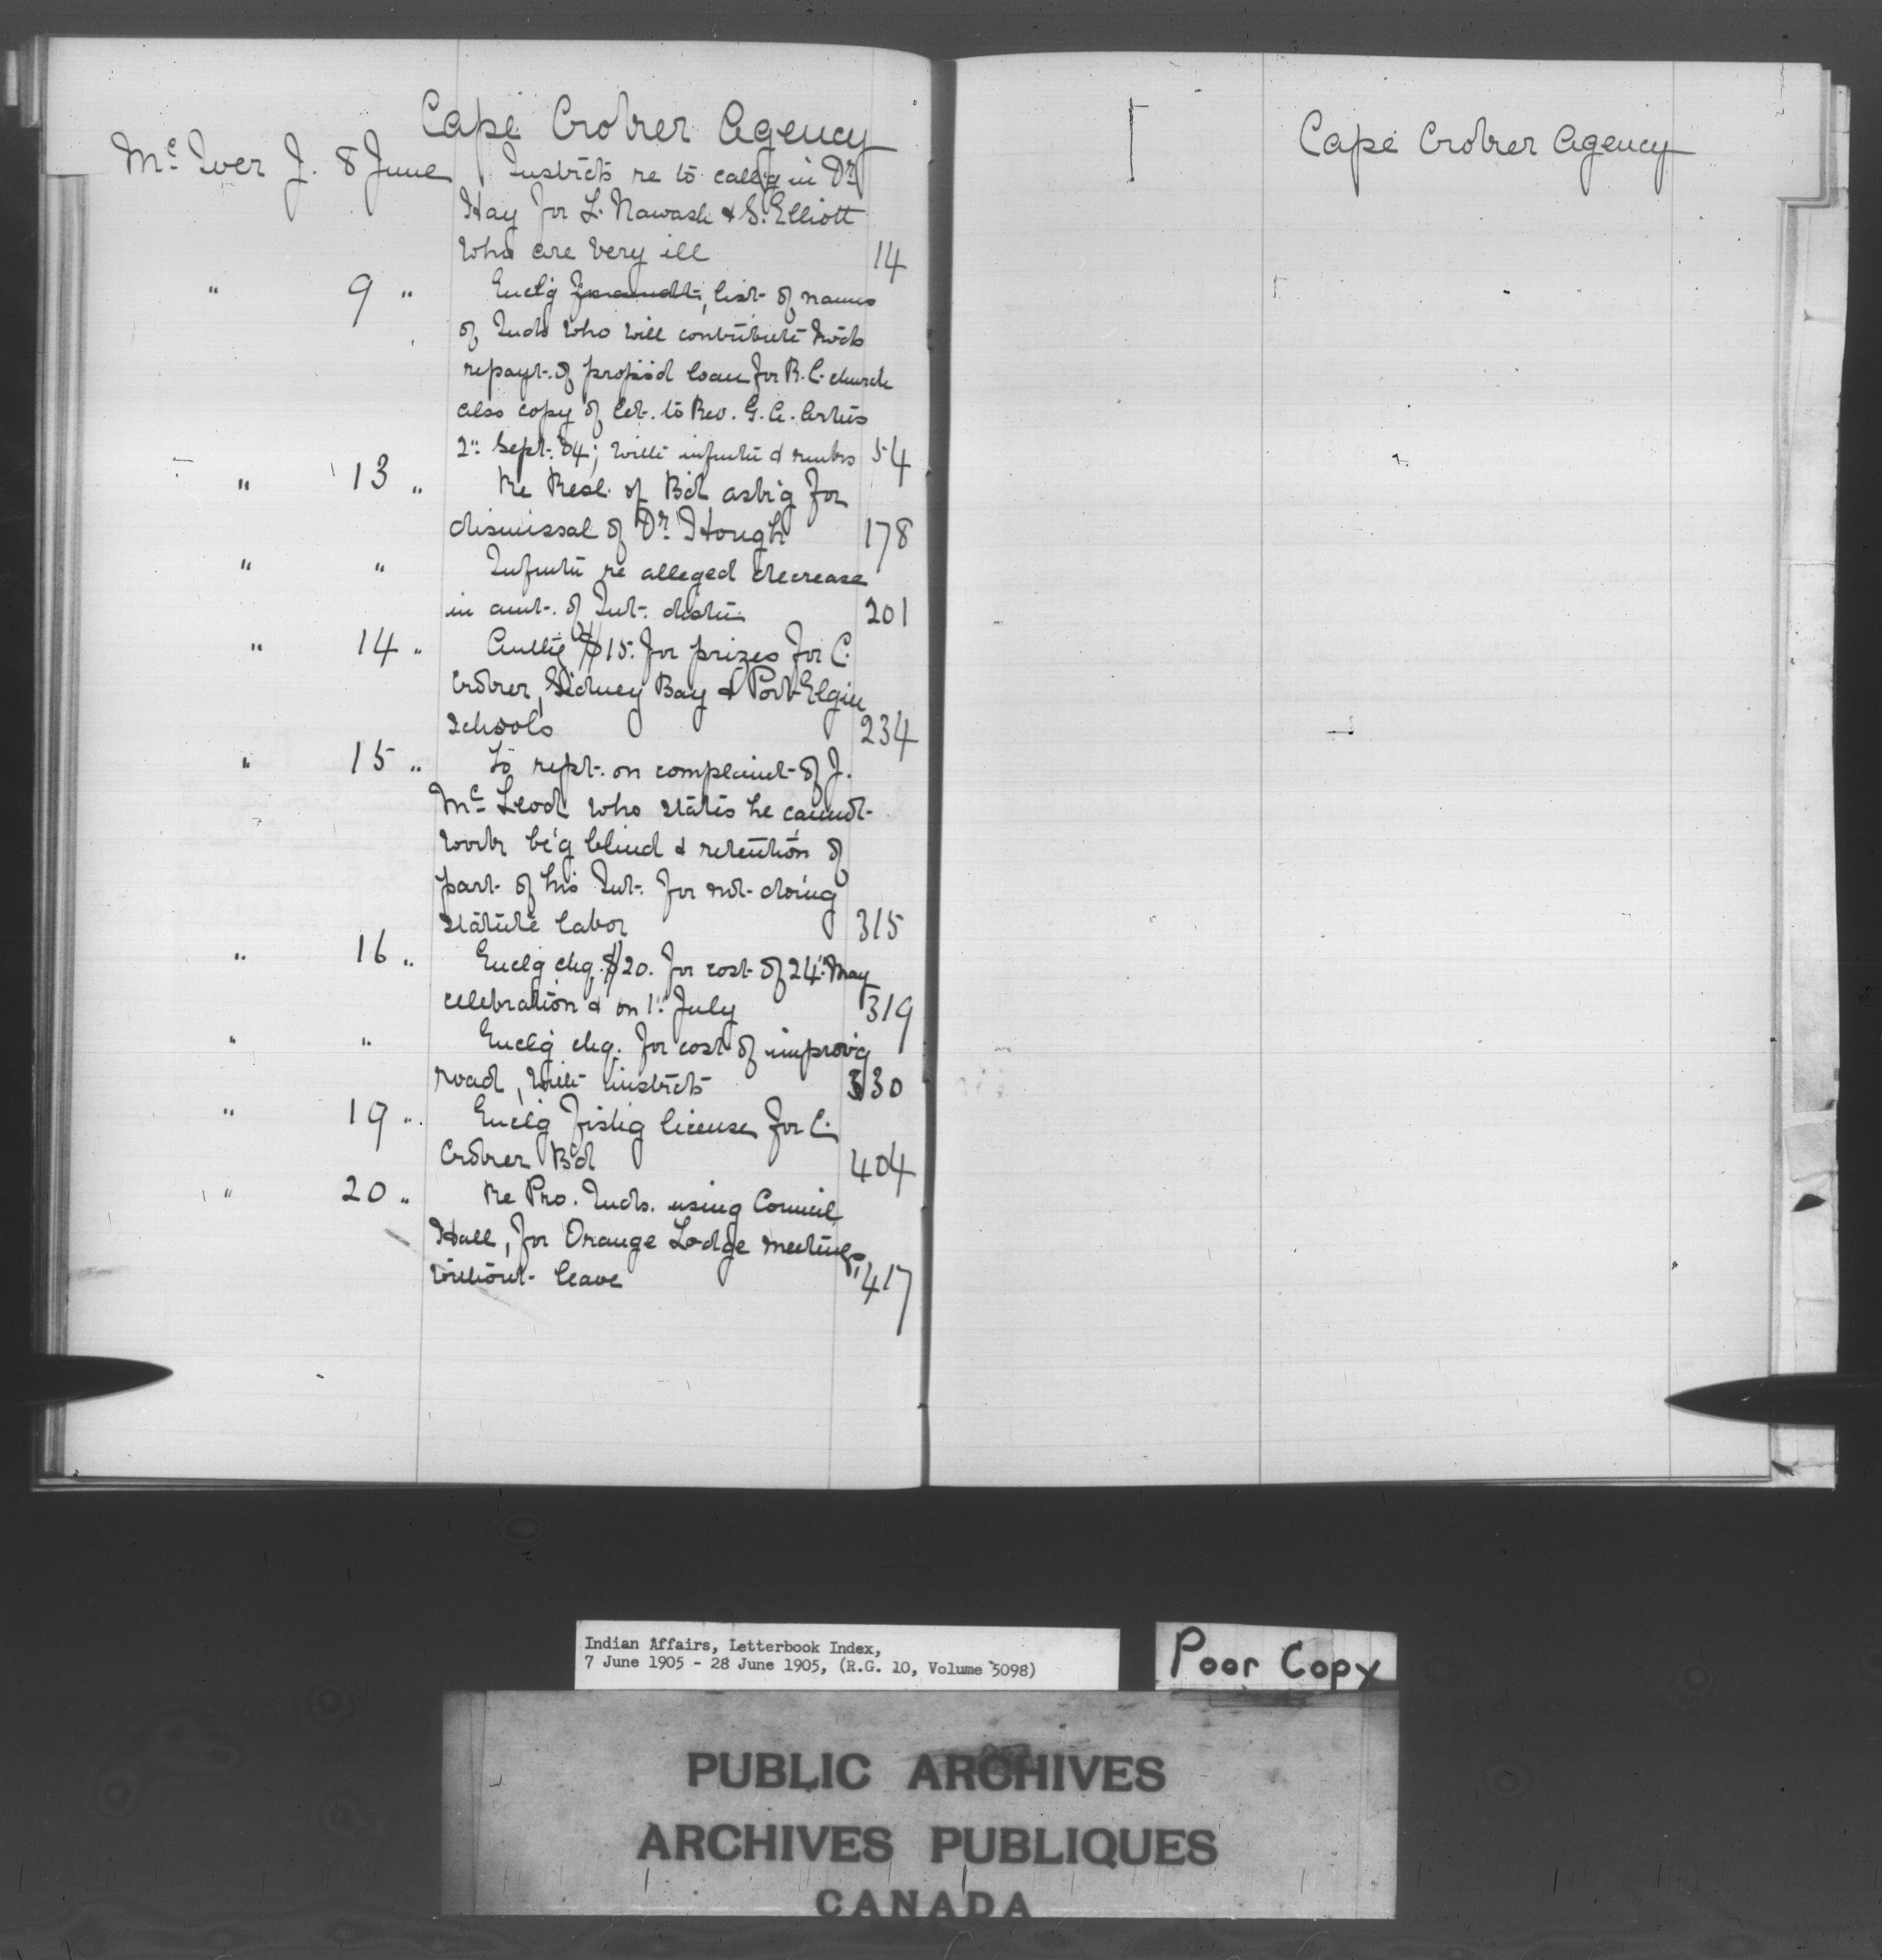 Cape Croker Agency
Mc Iver J. 8 June Instrcts re to call'g in Dr
Hay for L. Nawash & S. Elliott
who are very ill 14
" 9 " Enclg list of names
of Inds who will contribute twds
repayt. of propos'd loan for R.C. church
also copy of let. to Rev. G. A. Artus
2" Sept. 04; with infmtn & rembs 54
" 13 " Re Resl. of Bd ask'g for
dismissal of Dr. Hough 178
" " Infmtn re alleged decrease
in amt. of Int. distn 201
" 14 " Authg $15. for prizes for C.
Croker, Sidney Bay & Port Elgin
schools 234
" 15 " To rept. on complaint of J.
Mc Leod who states he cannot
work be'g blind & retention of
part of his Int. for not doing
statute labor 315
" 16 " Enclg chq. $20. for cost of 24" May
celebration & on 1" July 319
" " Enclg chq. for cost of improv'g
road, with instrcts 330
" 19 " Enclg fishg license for C.
Croker Bd 404
" 20 " Re Pro. Inds. using Council
Hall, for Orange Lodge meetings
without leave 417
Cape Croker Agency
Indian Affairs, Letterbook Index,
7 June 1905 - 28 June 1905, (R.G. 10, Volume 5098)
Poor Copy
PUBLIC ARCHIVES
ARCHIVES PUBLIQUES
CANADA